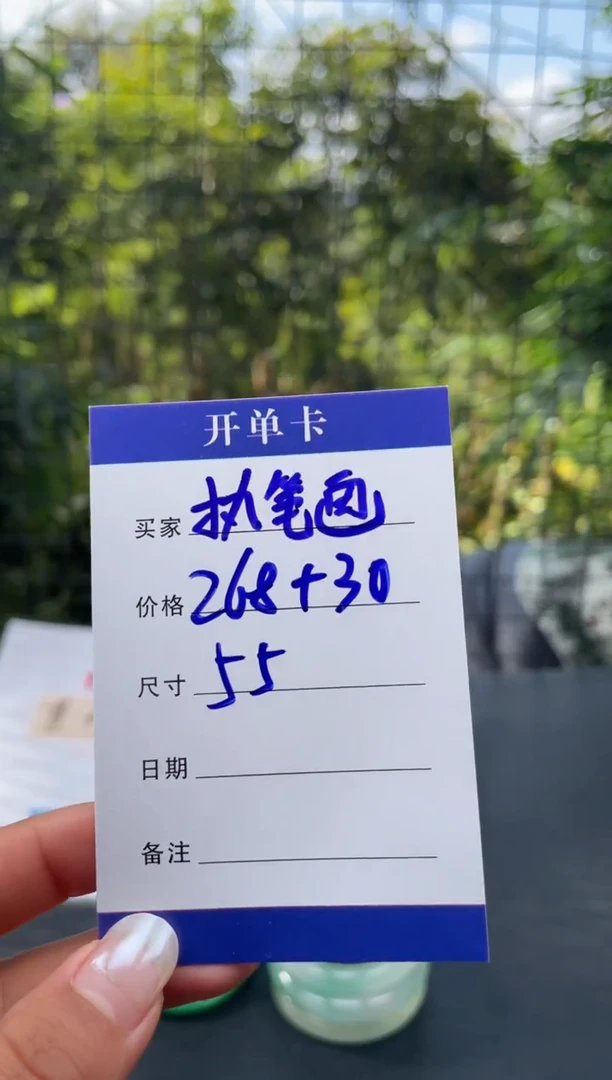 开单卡
买家 执笔画
价格 268+30
尺寸 55
日期
备注